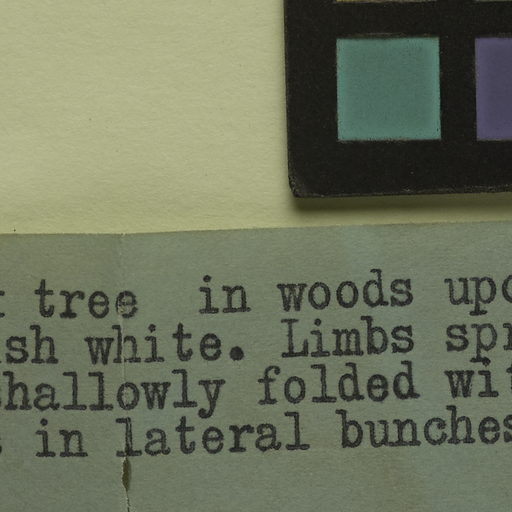 tree in woods
white. Limbs
shallowly folded
in lateral bunches